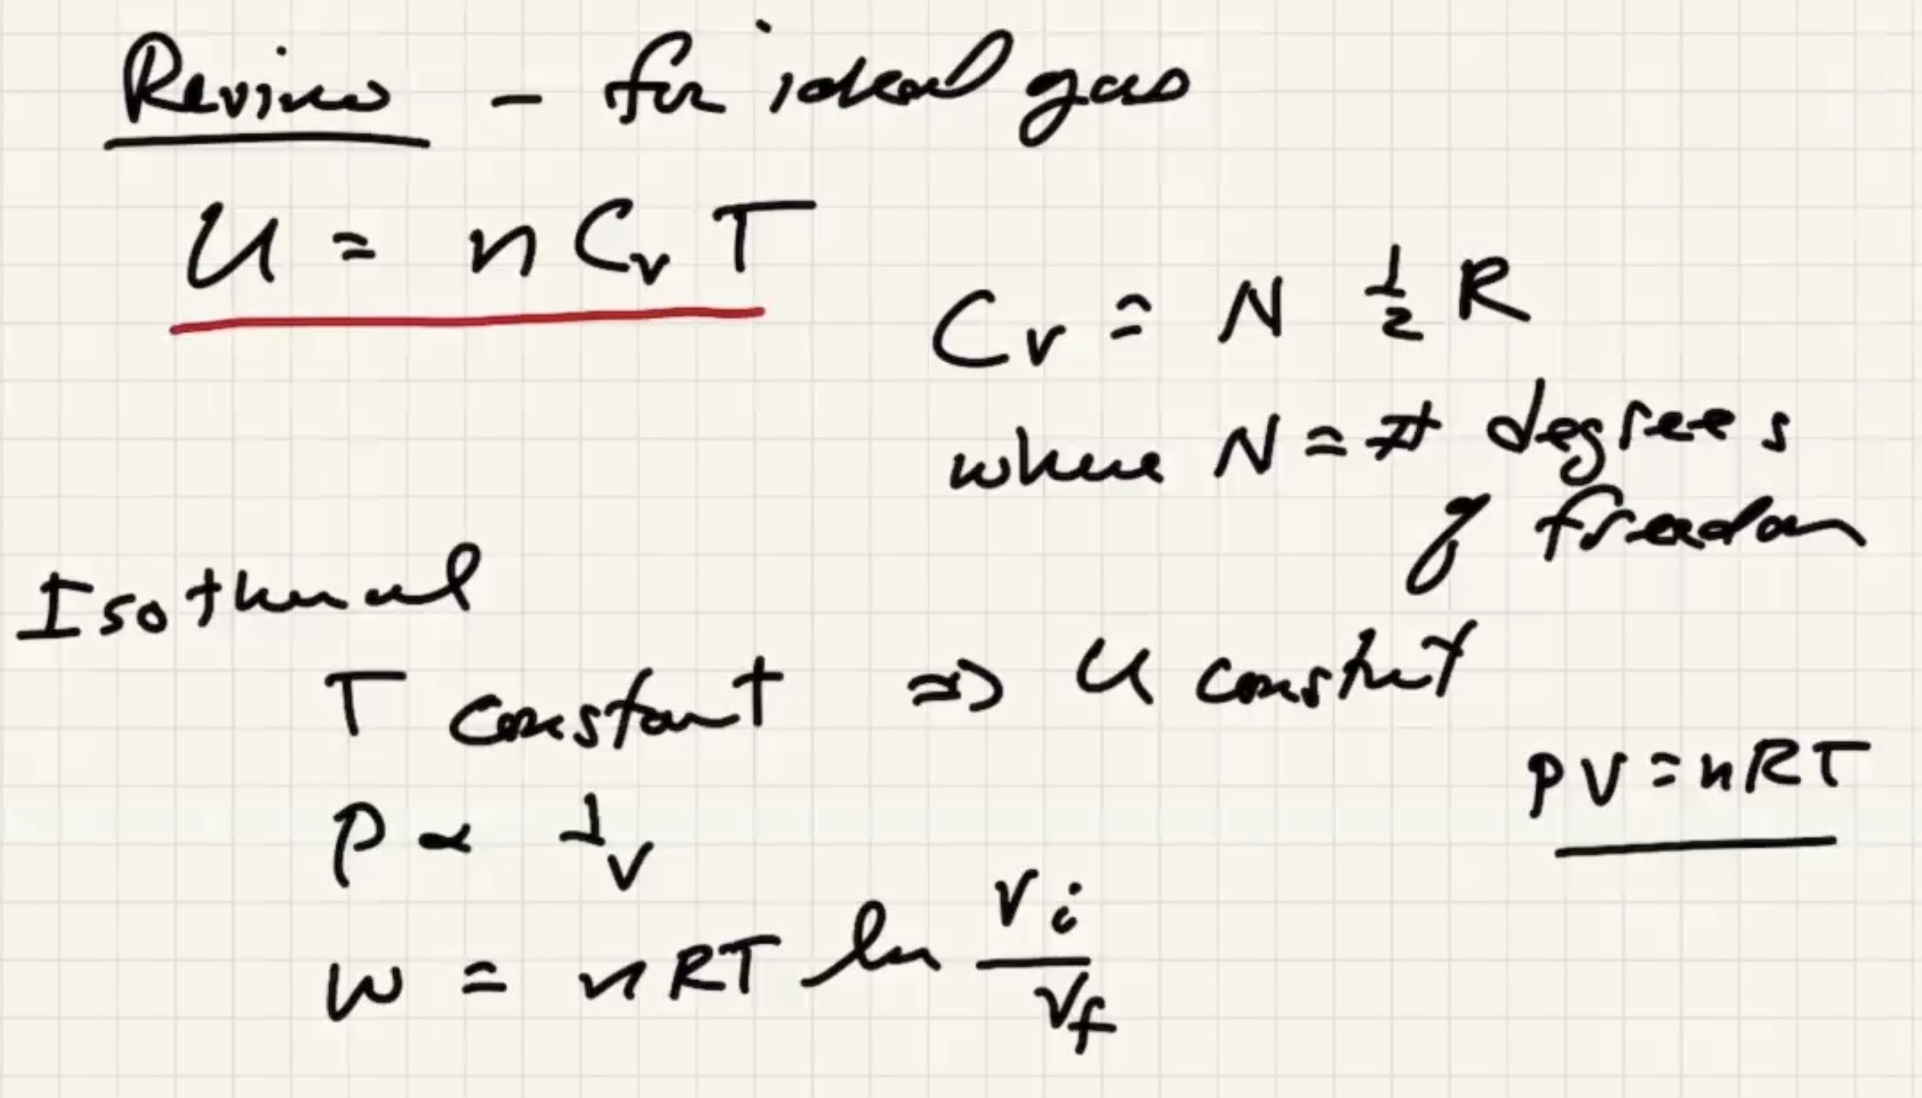 Review - for ideal gas
U = n Cv T
Cv = N 1/2 R
where N = # degrees
of freedom
Isothermal
T constant ⇒ U constant
PV = nRT
P ∝ 1/V
W = nRT ln Vi/Vf